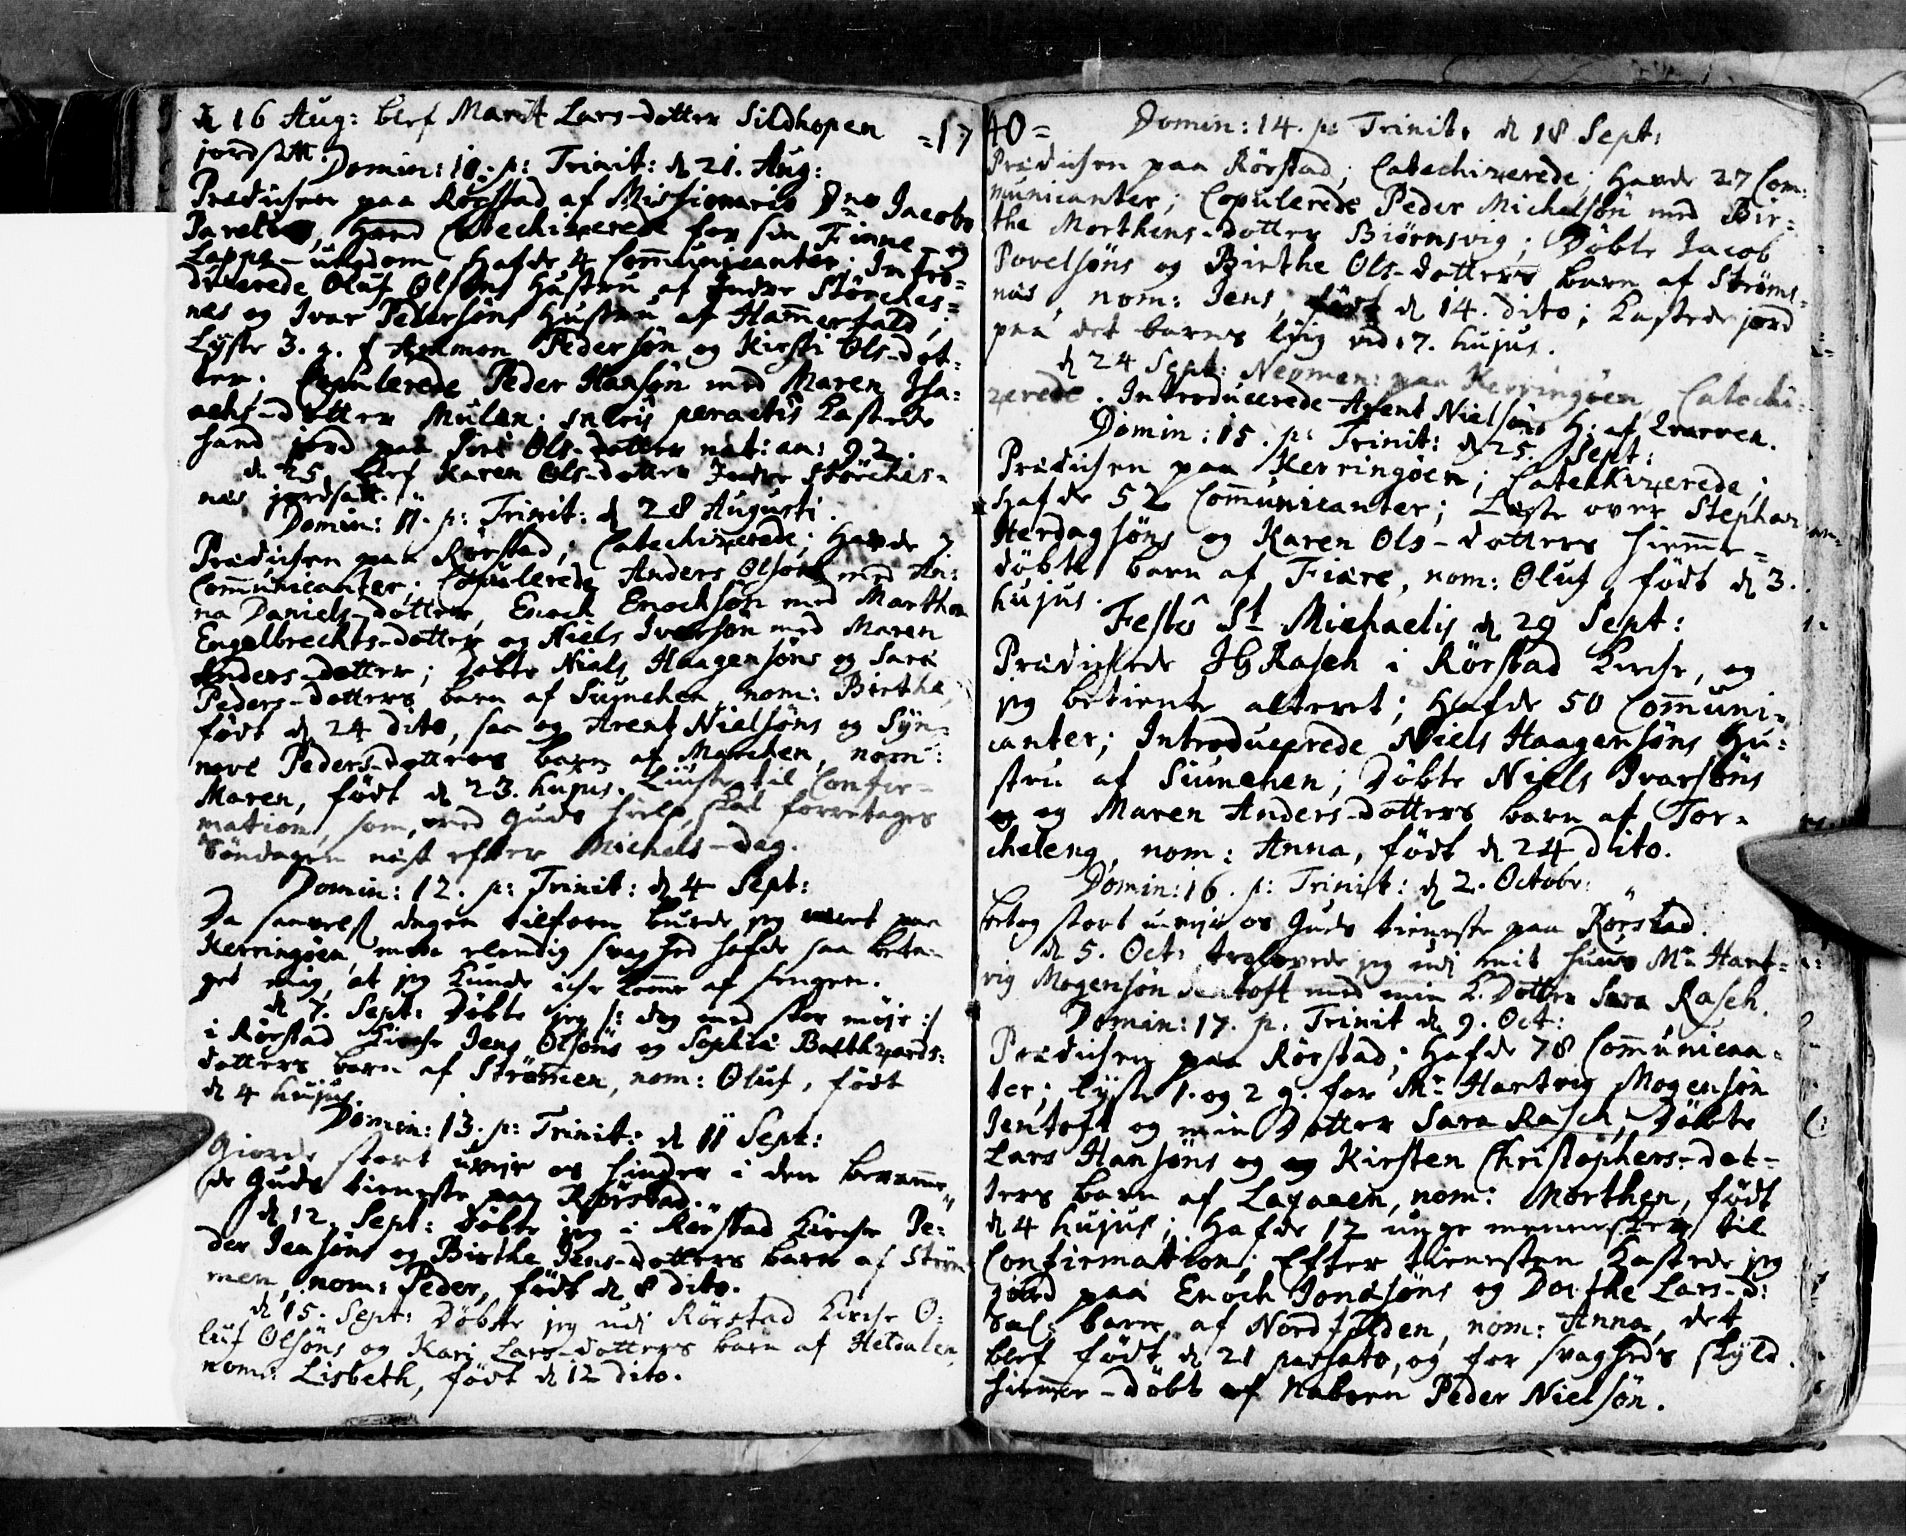 d 16 Aug: blef Marit Lars-dotter Sildhopen
jordsatt.
=17
Domin: 10. p: Trinit: d 21. Aug:
Prædichen paa Rörstad af Missionario Dno Jacobo
Parelius, Hand Catechizerede for sin Finne- og
Lappe-ungdom. Hafde 4 Com̅unicanter; Intro-
ducerede Oluf Olsöns Hustru af Indre Störches-
nes og Ivar Pedersöns Hustru af Ham̅erfald;
Lyste 3. g. f Ammon Pedersön og Kirsti Ols-dot-
ter. Copulerede Peder Hansön med Maren Isa-
achs-dotter Mulen; sacris peractis kastede
hand jord paa Siri Ols-dotter nat: an: 92.
d. 25 blef Karen Ols-dotter Indre Störches-
nes jordsatt.
Domin: 11. p: Trinit: d 28 Augusti.
Prædichen paa Rörstad; Catechizerede; Havde 7
Com̅unicanter; Copulerede Anders Olsön med An:
na Daniels-dotter, Enoch Enochsön med Martha
Engelbrechts-dotter og Niels Ivarsön med Maren
Anders-dotter; Döbte Niels Haagensöns og Sara
Peders-dotters barn af Siunehen, nom: Birthe,
födt d 24 dito, saa og Arent Nielsöns og Syn-
növe Peders-dotters barn af Mörchen, nom:
Maren, födt d 23. hujus. Liuste til Confir-
mation, som, med Guds hielp, skal forretages
Söndagen nest efter Michels-dag.
Domin: 12. p: Trinit: d 4 Sept:
Da saavelsom dagen tilforn burde jeg veret paa
Kerringöen, men elendig svaghed hafde saa beta-
get mig, at jeg kunde iche kom̅e af sengen.
d 7. Sept: Döbte jeg /: dog med stor möje :/
i Rörstad Kirche Jens Olsöns og Sophia Balthzards-
dotters barn af Strömmen, nom: Oluf, födt
d 4 hujus.
Domin: 13. p: Trinit: d 11 Sept:
Giorde stort uveir os hinder i den beram̅e-
de Guds tieneste paa Rörstad.
d 12. Sept: döbte jeg i Rörstad Kirche Pe-
der Jensöns og Birthe Jens-dotters barn af Ström
men, nom: Peder, födt d 8 dito.
d 15. Sept: Döbte jeg udi Rörstad Kirche O-
luf Olsöns og Kari Lars-dotters barn af Heldalen,
nom: Lisbeth, födt d 12 dito.
40=
Domin: 14. p: Trinit: d 18 Sept:
Prædichen paa Rörstad; Catechizerede; Havde 27 Com-
municanter; Copulerede Peder Michelsön med Bir-
the Morthens-dotter Biörnsvig; Döbte Jacob
Povelsöns og Birthe Ols-dotters barn af Ströms-
nes, nom: Jens, födt d 14. dito; kastede jord
paa det barns liig vid: 7. hujus.
d 24 Sept: Nepmen: paa Kerringöen Catechi-
zerede. Introducerede Arent Nielsöns H: af
Domin: 15. p: Trinit: d 25. Sept:
Prædichen paa Kerringöen; Catechizerede;
Hafde 52 Com̅unicanter; Læste over Stephan
Herdagsöns og Karen Ols-dotters hiem̅e-
döbte barn af Fiære, nom: Oluf, födt d 3.
hujus.
Festo St Michaelis d 29 Sept:
Prædichede JGRasch i Rörstad Kirche, og
jeg betiente alteret; Hafde 50 Com̅uni-
canter; Introducerede Niels Haagensöns Hu-
stru af Siunehen; Döbte Niels Ivarsöns
og og Maren Anders-dotters barn af Tor-
cheleng, nom: Anna, födt d 24 dito.
Domin: 16. p: Trinit: d 2. Octobr:
betog stort uveir os Guds tieneste paa Rörstad.
d 5. Oct: trolovede jeg udi mit huus Mr Hart-
vig Mogensön Jentoft med min K. Dotter Sara Rasch.
Domin: 17. p. Trinit d 9. Oct:
Prædichen paa Rörstad; Hafde 78 Com̅unican-
ter; Lyste 1. og 2 g. for Mr Hartvig Mogensön
Jentoft og min Dotter Sara Rasch; Döbte
Lars Hansöns og og Kirsten Christophers-dot-
ters barn af, nom: Morthen, födt
d 4 hujus; Hafde 12 unge mennesker til
Confirmation; Efter tienesten kastede jeg
jord paa Enoch Jonasöns og Dorthe Lars-d:
Sal: barn af Nordfolden, nom: Anna, det
blef födt d 21 passato, og for svagheds skyld
hiem̅e-döbt af naboen Peder Nielsön.